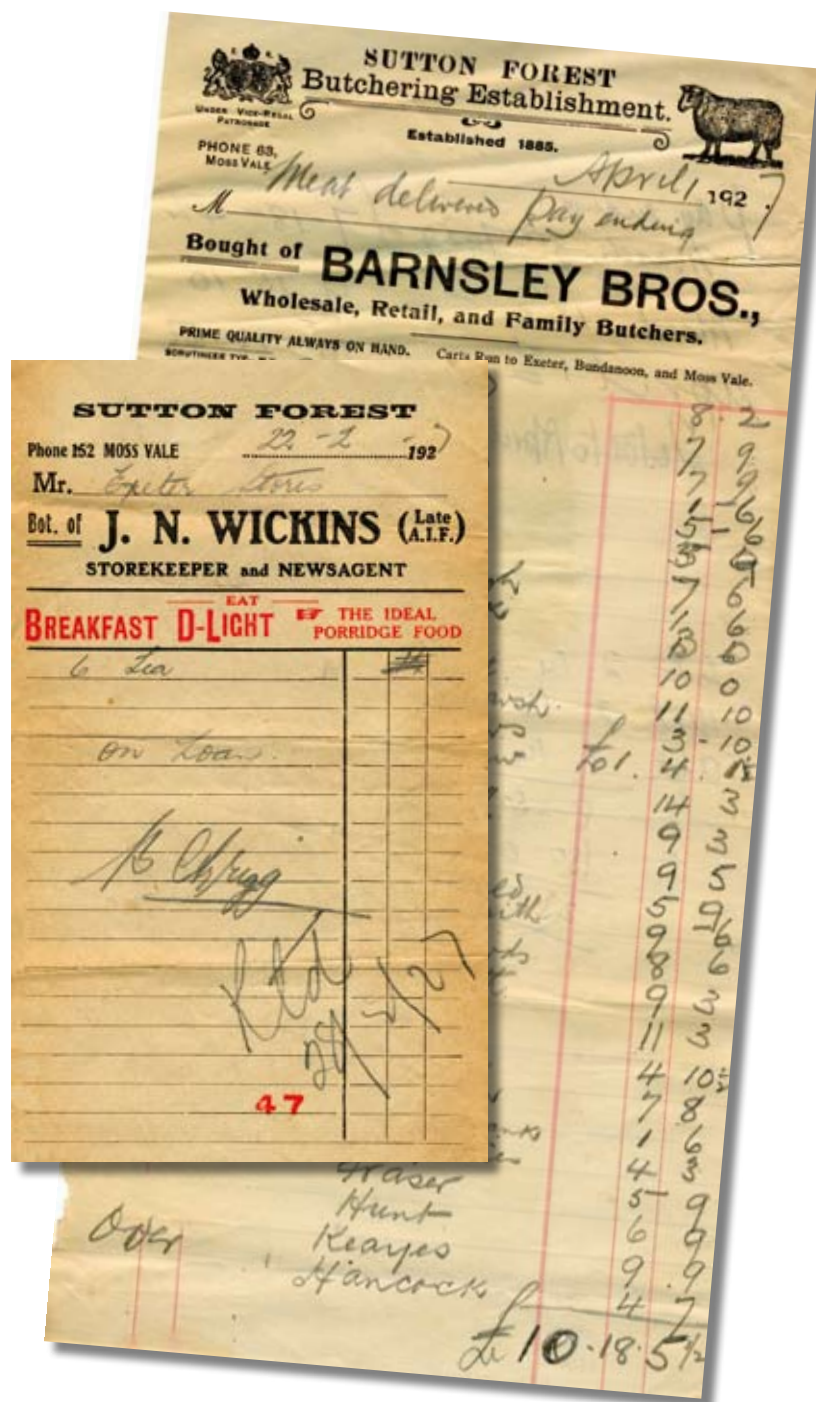 SUTTON FOREST
Butchering Establishment.
UNDER VICE-REGAL
PATRONAGE
Established 1885.
PHONE 63,
MOSS VALE
April 1927
M Meat delivered Day ending
Bought of BARNSLEY BROS.,
Wholesale, Retail, and Family Butchers.
PRIME QUALITY ALWAYS ON HAND.
Carts Run to Exeter, Bundanoon, and Moss Vale.
8 . 2
7 9
7 9
1 - 6
5 - 6
7 6
1 6
10 0
11 10
3 - 10
£1 . 4 . 1½
14 3
9 3
9 5
5 9
9 6
8 6
9 3
11 3
4 10½
7 8
1 6
4 3
Fraser 5 9
Hunt 6 9
Over
Keayes 9 . 9
Hancock 4 7
£ 10 . 18 . 5 ½
SUTTON FOREST
Phone 152 MOSS VALE 22 - 2 - 1927
Mr. Exeter Stores
Bot. of J. N. WICKINS (Late A.I.F.)
STOREKEEPER and NEWSAGENT
EAT
BREAKFAST D-LIGHT THE IDEAL
PORRIDGE FOOD
6 Tea
on Loan.
Rtd
28/2/27
47